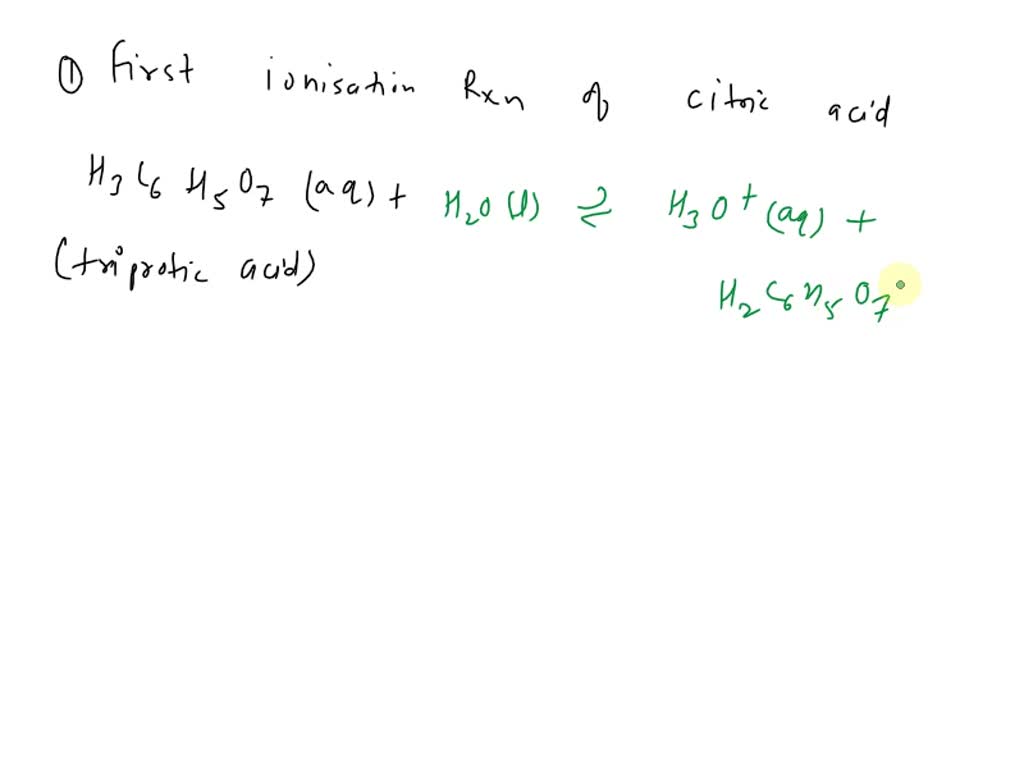 ① First ionisation Rxn of citric acid
H₃C₆H₅O₇ (aq) + H₂O (l) ⇌ H₃O⁺ (aq) +
(triprotic acid)
H₂C₆H₅O₇